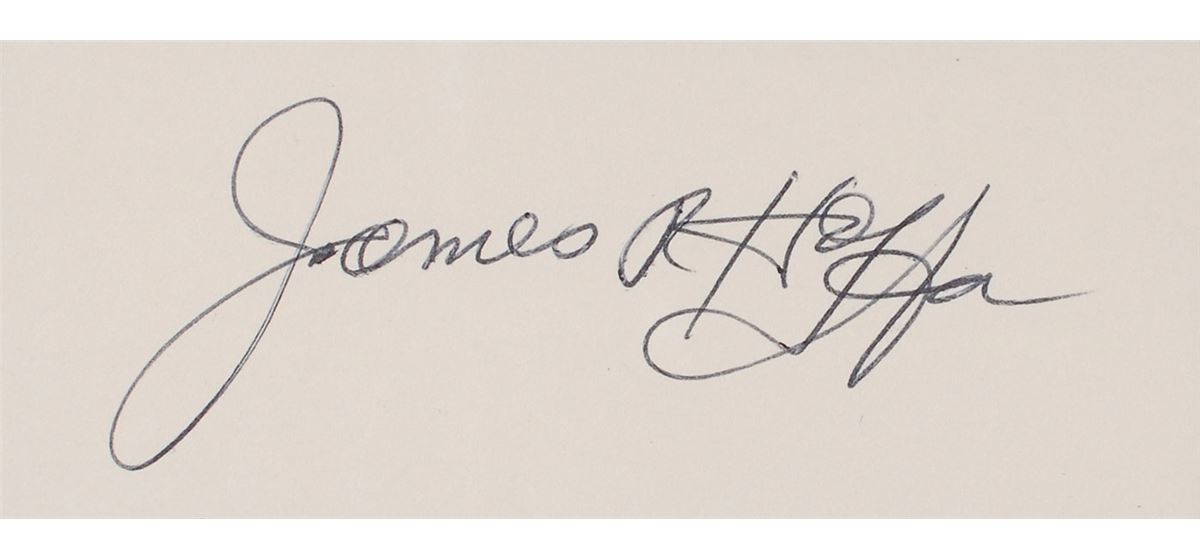 James R Hoffa